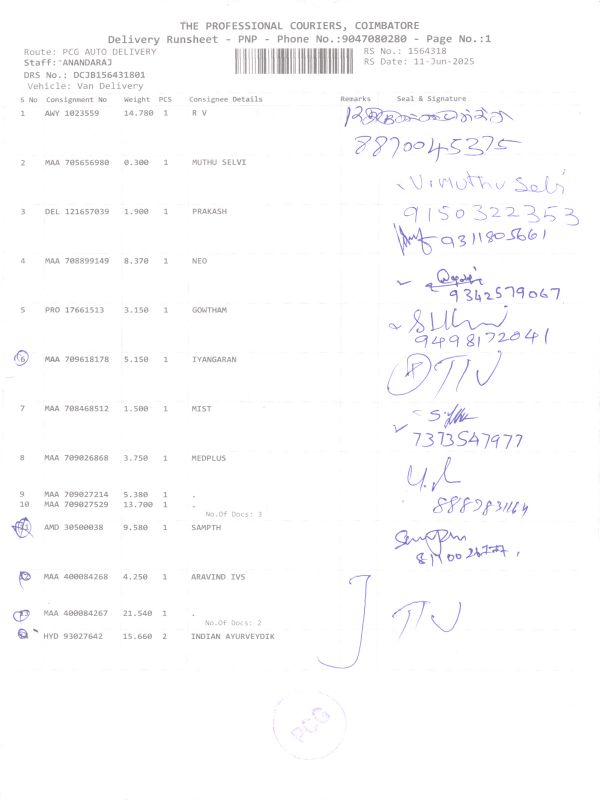 THE PROFESSIONAL COURIERS, COIMBATORE
Delivery Runsheet - PNP - Phone No.:9047080280 - Page No.:1
Route: PCG AUTO DELIVERY RS No.: 1564318
Staff: ANANDARAJ RS Date: 11-Jun-2025
DRS No.: DCJB156431801
Vehicle: Van Delivery
S No Consignment No Weight PCS Consignee Details Remarks Seal & Signature
1 AWY 1023559 14.780 1 R V
8870045375
2 MAA 705656980 0.300 1 MUTHU SELVI
9150322353
3 DEL 121657039 1.900 1 PRAKASH
9311805661
4 MAA 708899149 8.370 1 NEO
9342579067
5 PRO 17661513 3.150 1 GOWTHAM
9498172041
6 MAA 709618178 5.150 1 IYANGARAN
7 MAA 708468512 1.500 1 MIST
7373547977
8 MAA 709026868 3.750 1 MEDPLUS
9 MAA 709027214 5.380 1 .
10 MAA 709027529 13.700 1 .
No.Of Docs: 3
11 AMD 30500038 9.580 1 SAMPTH
12 MAA 400084268 4.250 1 ARAVIND IVS
13 MAA 400084267 21.540 1 .
No.Of Docs: 2
HYD 93027642 15.660 2 INDIAN AYURVEYDIK
PCG